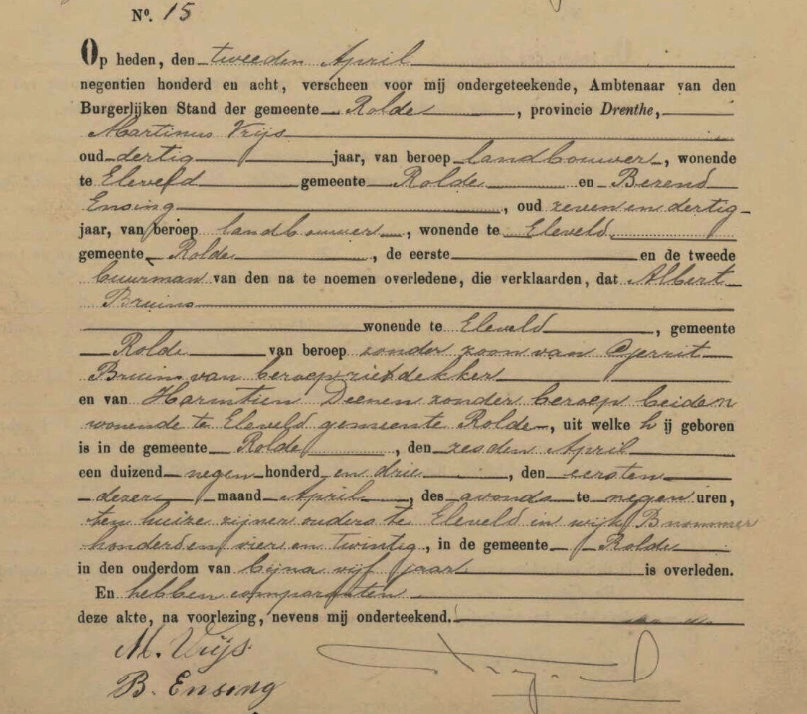 No. 15
Op heden, den tweeden April
negentien honderd en acht, verscheen voor mij ondergeteekende, Ambtenaar van den
Burgerlijken Stand der gemeente Rolde, provincie Drenthe,
Martinus Vrijs
oud dertig jaar, van beroep landbouwer, wonende
te Eleveld gemeente Rolde en Berend
Ensing, oud zeven en dertig
jaar, van beroep landbouwer, wonende te Eleveld
gemeente Rolde, de eerste en de tweede
buurman van den na te noemen overledene, die verklaarden, dat Albert
Bruins
wonende te Eleveld, gemeente
Rolde van beroep zonder zoon van Gerrit
Bruins van beroep rietdekker
en van Harmtien Deenen zonder beroep beiden
wonende te Eleveld gemeente Rolde, uit welke hij geboren
is in de gemeente Rolde, den zesden April
een duizend negen honderd en drie, den eersten
dezer maand April, des avonds te negen uren,
ten huize zijner ouders te Eleveld in wijk B nommer
honderd en vier en twintig, in de gemeente Rolde
in den ouderdom van bijna vijf jaar is overleden.
En hebben comparanten
deze akte, na voorlezing, nevens mij onderteekend.
M. Vrijs
B. Ensing